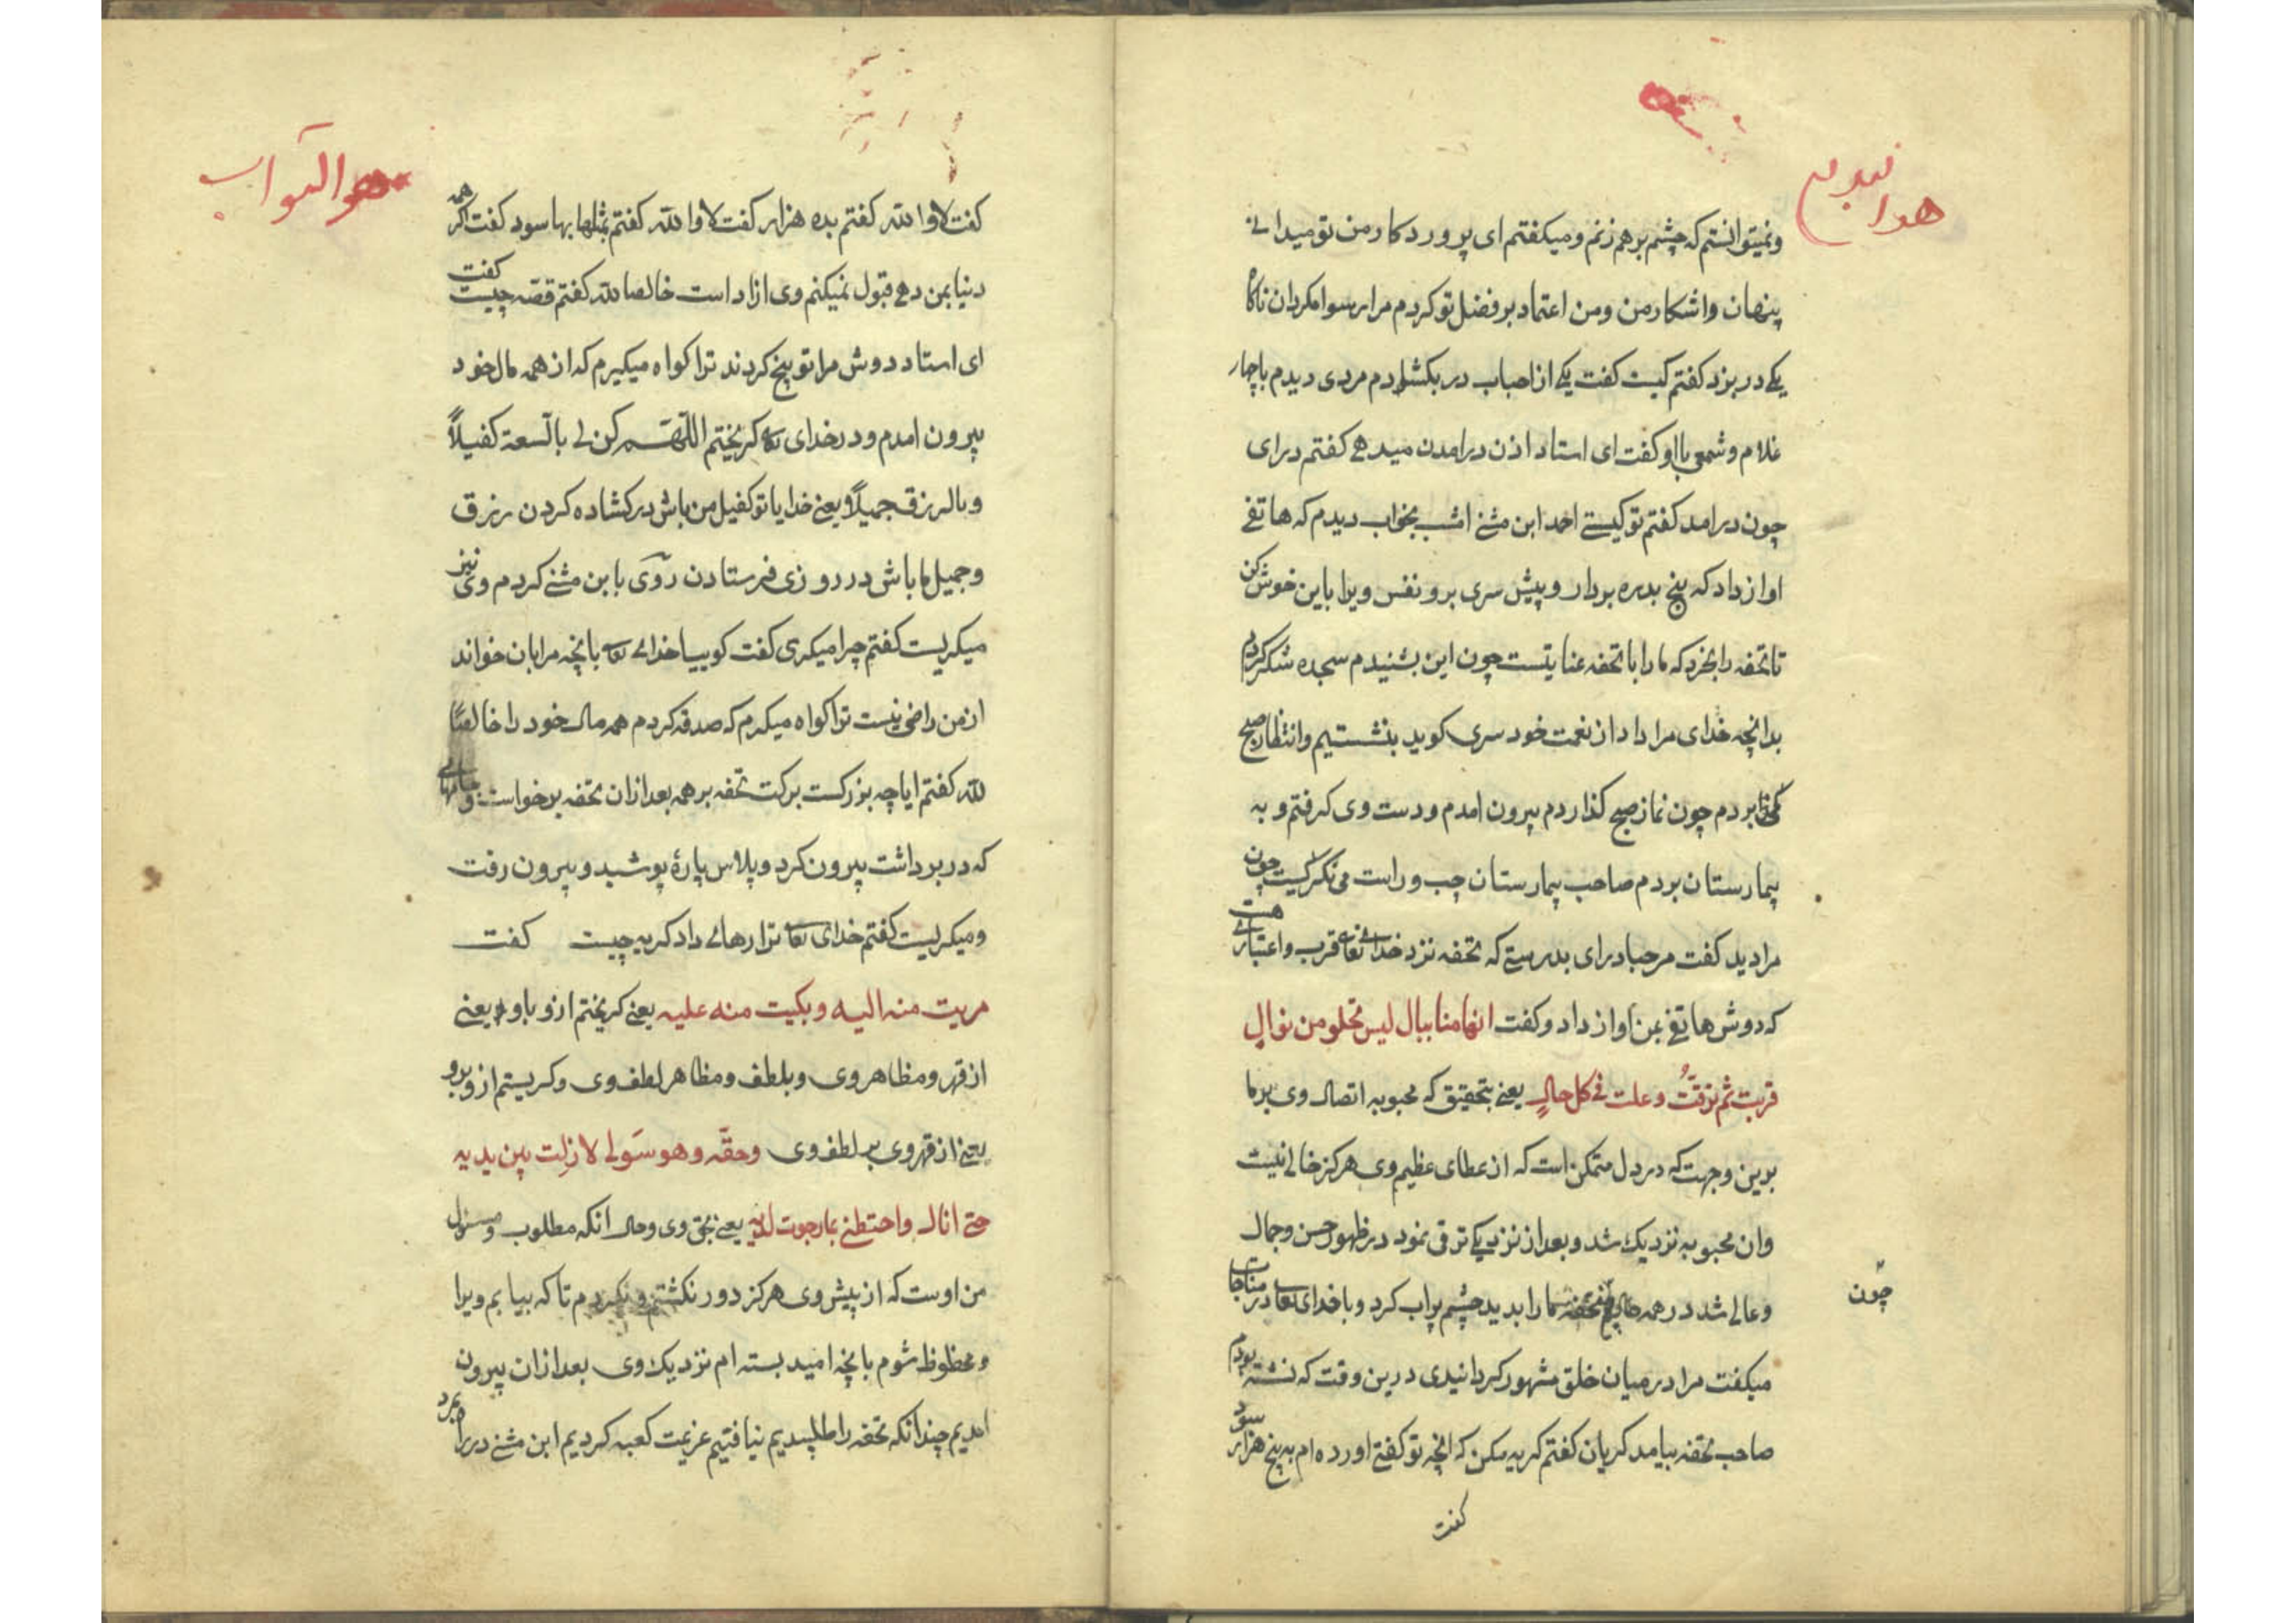 ونمیتوانستم که چشم برهم زنم ومیکفتم ای پروردکار من تو میدانے
پنهان واشکار من ومن اعتماد بر فضل تو کردم مرا رسوا مکردان ناکاه
یکے در بزد کفتم کیست کفت یکے از احباب در بکشادم مردی دیدم باچهار
غلام وشمعی بااو کفت ای استاد اذن درامدن میدهے کفتم درای
چون درامد کفتم تو کیستے احمد ابن مثنے امشب بخواب دیدم که هاتفے
اواز داد که پنج بدره بردار وپیش سری برو نفس ویرا باین خوش کن
تا تحفه را بخرد که ما را با تحفه عنایتست چون این بشنیدم سجده شکر کردم
بدانچه خدای مرا داد از نعمت خود سری کوید بنشستیم وانتظار صبح
بردم چون نماز صبح کذاردم بیرون امدم ودست وی کرفتم و به
بیمارستان بردم صاحب بیمارستان چپ وراست می نکریست چون
مرا دید کفت مرحبا درای بدرستے که تحفه نزد خدای تعالی قرب واعتبارے هست
که دوش هاتفے بمن اواز داد وکفت انها منا ببال لیس تخلو من نوال
قربت ثم ترقت وعلت فی کل حال یعنے بتحقیق که محبوبه اتصال وی برما
برین وجهت که در دل متمکن است که از عطای عظیم وی هرکز خالے نیست
وان محبوبه نزدیک شد وبعد از نزدیکے ترقی نمود در ظهور حسن وجمال
وعالے شد در همه تحفه ما را بدید چشم پراب کرد وباخدای تعالی در مناجات
چون
میکفت مرا در میان خلق مشهور کردانیدی درین وقت که نشسته بودم
صاحب تحفه بیامد کریان کفتم کریه مکن که انچه تو کفتے اورده ام به پنج هزار سود
کفت
هو التواب
کفت لا والله کفتم بده هزار کفت لا والله کفتم بمثلها بها سود کفت اکر همه
دنیا بمن دهے قبول نمیکنم وی ازاد است خالصا لله کفتم قصه چیست کفت
ای استاد دوش مرا توبیخ کردند ترا کواه میکیرم که از همه مال خود
بیرون امدم ودر خدای تعالی کریختم اللّهمّ کن لے بالسعة کفیلاً
وبالرزق جمیلاً یعنے خدایا تو کفیل من باش در کشاده کردن رزق
وجمیل ما باش در روزی فرستادن روی بابن مثنے کردم وی نیز
میکریست کفتم چرا میکری کفت کوییا خدای تعالی بانچه مرا بان خواند
از من راضی نیست ترا کواه میکیرم که صدقه کردم همه مال خود را خالصًا
لله کفتم ایا چه بزرکست برکت تحفه برهمه بعد ازان تحفه برخواست وجامهائے
که در بر داشت بیرون کرد وپلاس پارهٔ پوشید وبیرون رفت
ومیکریست کفتم خدای تعالی ترا رهائے داد کریه چیست کفت
هربت منه الیه وبکیت منه علیه یعنے کریختم ازو باو یعنے
از قهر ومظاهر وی وبلطف ومظاهر لطف وی وکریستم ازو برو
یعنے از قهر وی بر لطف وی وحقّه وهو سَولے لا زلت بین یدیه
حتے انال واحتظے بما رجوت لدیه یعنے بحق وی وحال انکه مطلوب ومسئول
من اوست که از پیش وی هرکز دور نکشتم ونکردم تا که بیابم ویرا
ومحظوظ شوم بانچه امید بسته ام نزدیک وی بعد ازان بیرون
امدیم چندانکه تحفه را طلبیدیم نیافتیم عزیمت کعبه کردیم ابن مثنے در راه بمرد